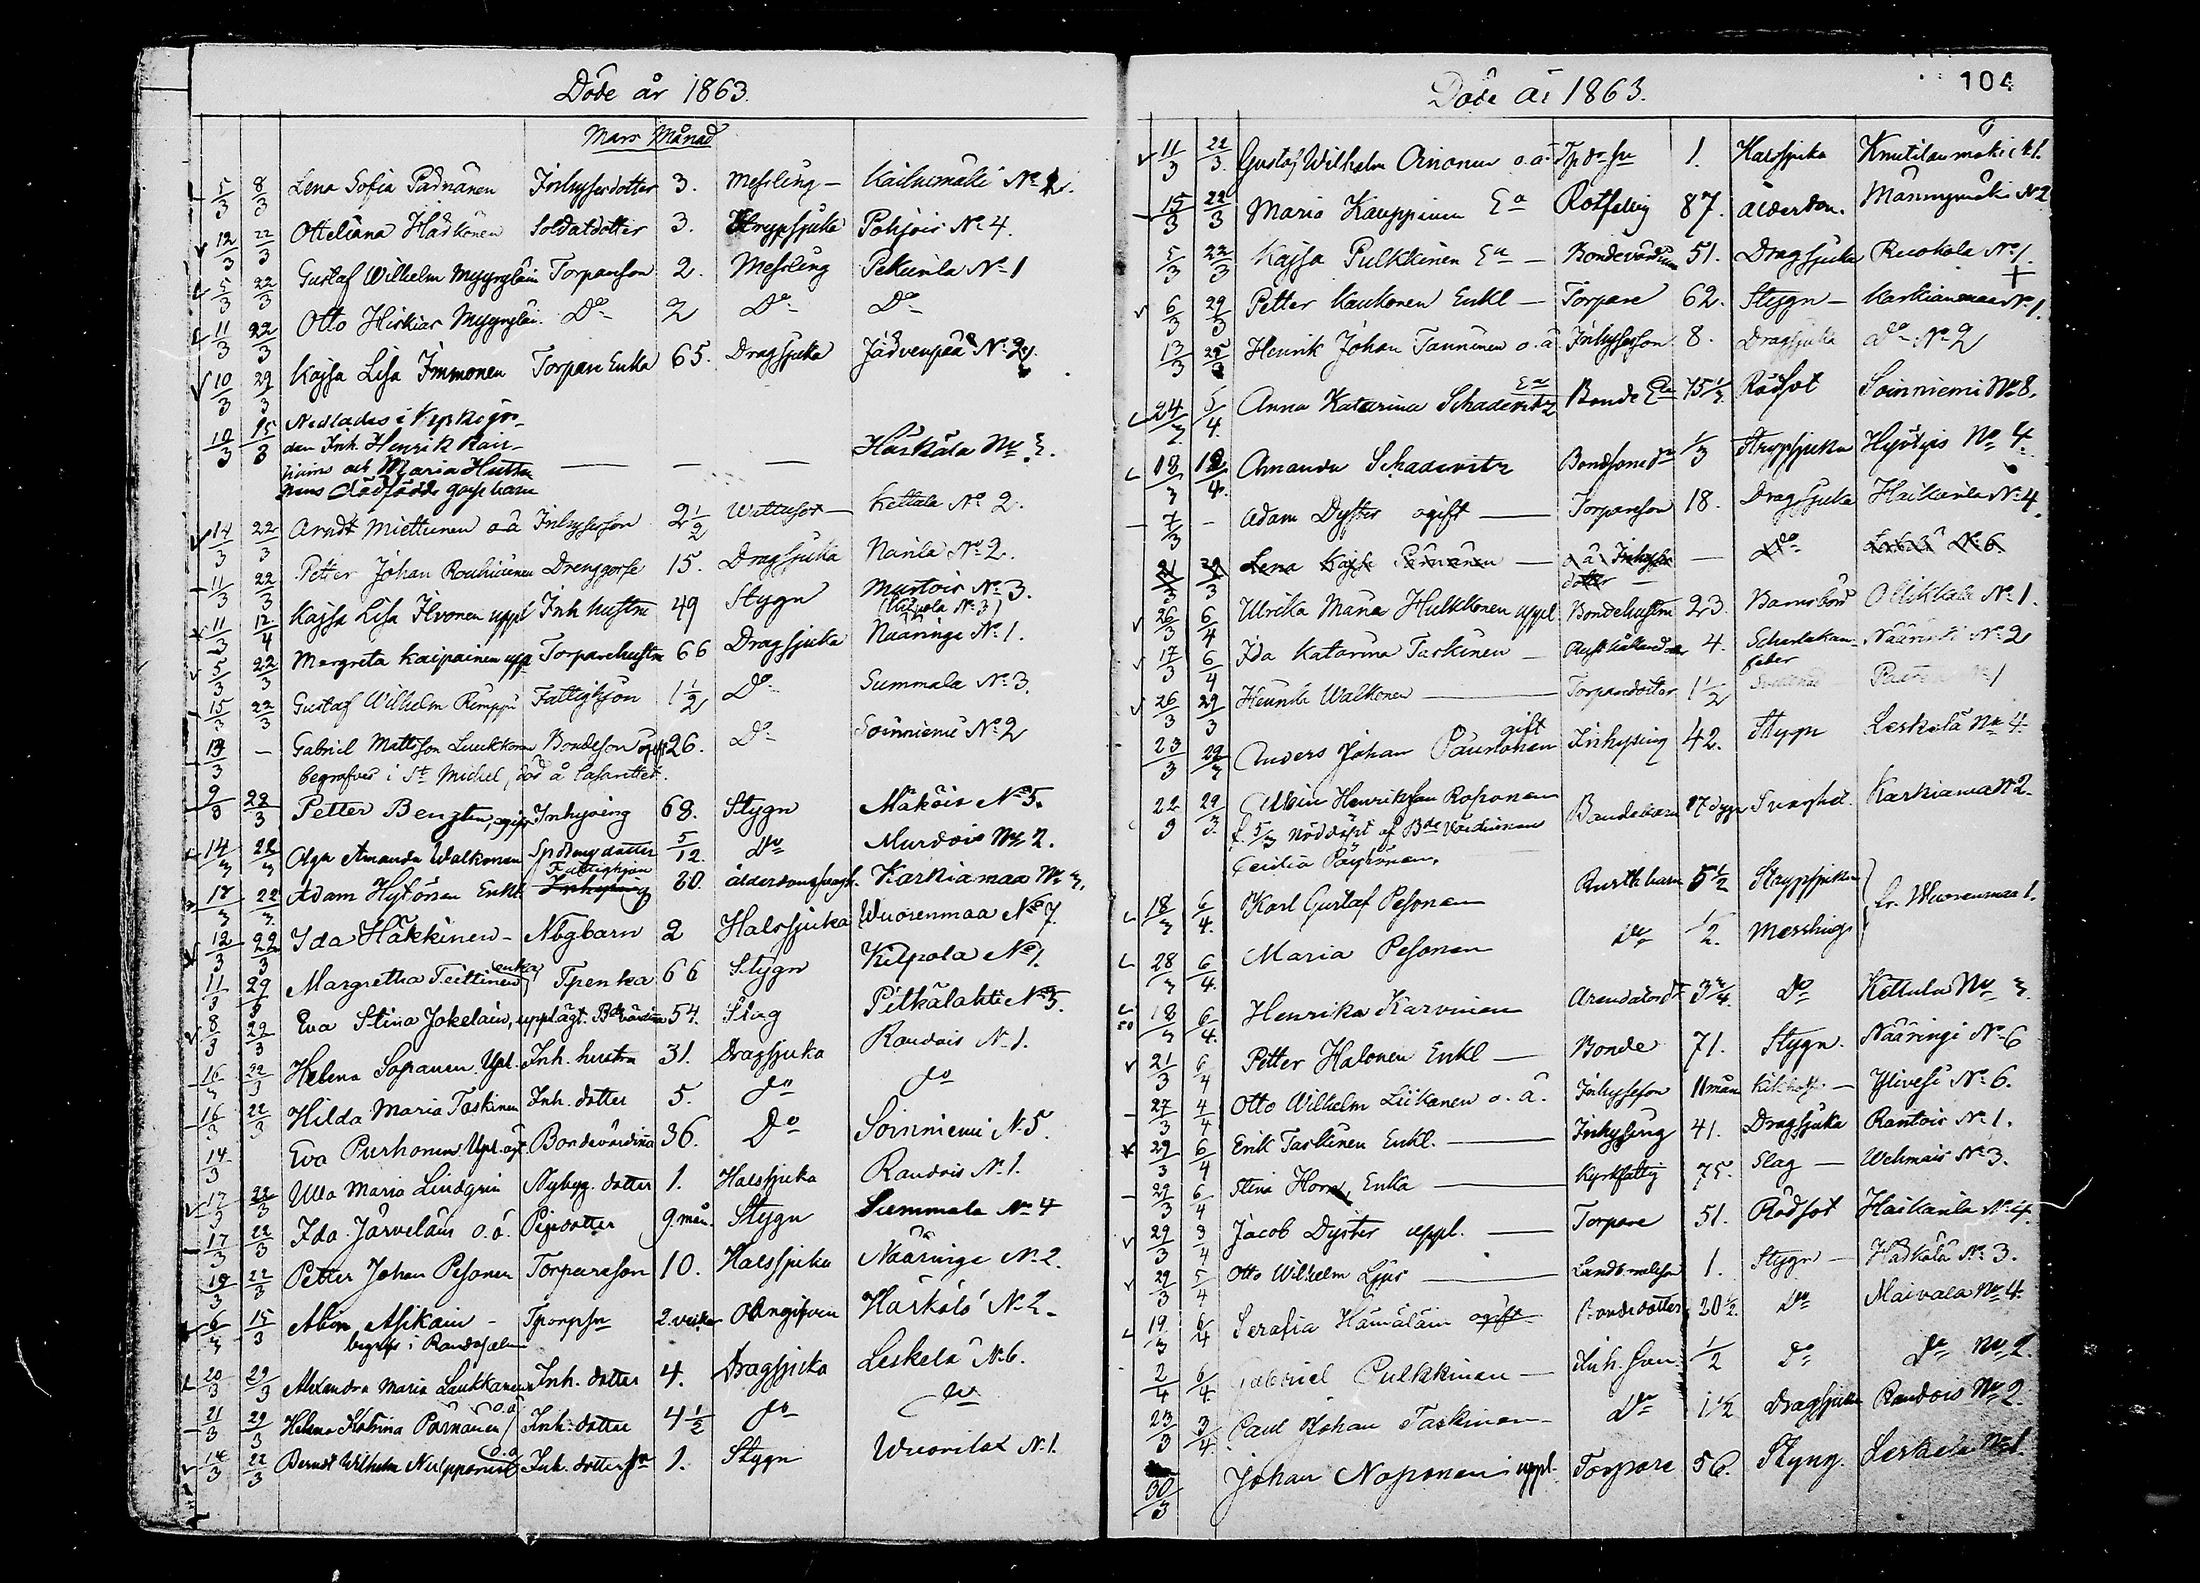 Döde år 1863.
Mars Månad
5/3 8/3 Lena Sofia Parnänen Inhysesdotter 3. Messling — Kaihumäki No
12/3 22/3 Otteliana Häkkönen Soldatdotter 3. Strypsjuka Pohjois No 4.
5/3 22/3 Gustaf Wilhelm Torpareson 2. Messling Pekurila No 1
11/3 22/3 Otto Hiskias Do 2 Do Do
10/3 29/3 Kajsa Lisa Immonen Torpare Enka 65. Dragsjuka Järvenpää No 2
10/3 15/3 Nedlades i
den Inh. Henrik
och Maria Hustru
dödfödde gossebarn — — — Härkälä No 3.
14/3 22/3 Arndt Miettunen o ä Inhyseson 2 1/2 Wattusot — Kettula No 2.
11/3 22/3 Petter Johan Rouhiainen Drenggosse 15. Dragsjuka Narila No 2.
11/3 12/4 Kajsa Lisa Ilvonen uppl Inh hustru 49 Stygn No 3.
(No 3)
5/3 22/3 Margreta Kaipainen uppl Torparehustru 66 Dragsjuka Nääringe No 1.
15/3 22/3 Gustaf Wilhelm Remppi Fattighjon 1 1/2 Do Summala No 3.
13/3 — Gabriel Mattsson Luukkonen Bondeson ogift 26. Do Soinniemi No 2
begrafves i St Michel, död å lasarettet.
9/3 22/3 Petter Benzten, ogift Inhysing 68. Stygn Mäkois No 5.
14/3 22/3 Olga Amanda Walkonen dotter 5/12. Do Murdois No 2.
Fattighjon
17/3 22/3 Adam Hytönen Enkl. Inhysing 80. ålderdomssvagh. Karkiamaa No 3.
12/3 22/3 Ida Häkkinen — Nbgbarn 2 Halssjuka Wuorenmaa No 7.
enka
11/3 29/3 Margretha Teittinen Tpenka 66 Stygn Kilpola No 1.
8/3 22/3 Eva Stina Jokelain, uppl ägt. Bdevärdinna 54. Slag Pitkälahti No 3.
16/3 22/3 Helena Soranen Upl. Inh. hustru 31. Dragsjuka Randois No 1.
16/3 22/3 Hilda Maria Taskinen Inh. dotter 5. Do Do
14/3 Eva Purhonen Upl. ägt Bondevärdinna 36. Do Soinniemi No 5.
17/3 22/3 Ulla Maria Lindgrin Nybyg. dotter 1. Halssjuka Randois No 1.
17/3 22/3 Ida Järveläin o.ä. Pigdotter 9 mån. Stygn Summala No 4
19/3 22/3 Petter Johan Pesonen Torpareson 10. Halssjuka Nääringe No 2.
6/3 15/3 Abin Asikain — Tporpsn 2. veckor Oangifven Härkälä No 2.
begrfs i Randasalmi
20/3 29/3 Alexandra Maria Laukkanen Inh. dotter 4. Dragsjuka Leskelä No 6.
o.ä
21/3 29/3 Helena Katrina Parnänen Inh. dotter 4 1/2 Do Do
o.ä
14/3 22/3 Berndt Wilhelm Inh. dotter sn 1. Stygn Wuorilax No 1.
Döde år 1863.
104
11/3 22/3 Gustaf Wilhelm Ainonen o.ä. Tp dr sn 1. Halssjuka Knutilanmäki
15/3 22/3 Maria Kauppinen Ea Rotfattig 87. ålderdom. Männynmäki No 2
5/3 22/3 Kajsa Pulkkinen Ea — Bondevärdinna 51. Dragsjuka Ruokola No 1.
6/3 29/3 Petter Kaukonen Enkl — Torpare 62. Stygn — Karkiamaa No 1.
13/3 29/3 Henrik Johan Taruinen o.ä Inhyseson 8. Dragsjuka Do No 2
Ea
24/3 5/4 Anna Katarina Schadevitz Bonde Ea 75 1/2 Rödsot Soinniemi No 8.
18/3 12/4 Amanda Schadevitz Bondsone dr 1/3 Strypsjuka Hyötyis No 4.
7/3 — Adam Dyster ogift — Torpareson 18. Dragsjuka Haikarila No 4.
21/3 29/3 Lena Kajsa Parnänen — o ä Inhyses — Do No 6.
dotter
26/3 6/4 Ulrika Maria Hulkkonen uppl. Bondehustru 23. Barnsbörd Ollikkala No 1.
17/3 6/4 Ida Katarina Taskinen — 4. Scharlakans Nääringi No 2
feber
26/3 29/3 Henrik Walkonen — Torparedotter 1 1/2 No 1
gift
23/3 29/3 Anders Johan Paunonen Inhysing 42. Stygn Leskelä No 4.
22/3 29/3 Albin Henriksson Roponen Bondebarn 17 dygn Svaghet. Karkiamaa No 2.
f. 5/3 Nöddöpt af Bde Värdinnan
Cecilia Pöyhönen.
18/3 6/4 Karl Gustaf Pesonen Rusth barn 5 1/2 Strypsjukan
Wuorenmaa 1.
28/3 6/4 Maria Pesonen Do 1/2. Messling
18/3 6/4 Henrika Karvinen Arendator dr 3 3/4. Do Kettula No 3.
21/3 6/4 Petter Halonen Enkl — Bonde 71. Stygn. Nääringi No 6
27/3 4/4 Otto Wilhelm Liikanen o.ä. Inhyseson 11 mån Kikhosta — Ylivesi No 6.
29/3 6/4 Erik Taskinen Enkl. — Inhysing 41. Dragsjuka Rantois No 1.
29/3 6/4 Stina Horn, Enka — Kyrkfattig 75. Slag — Wehmais No 3.
29/3 3/4 Jacob Dyster uppl. — Torpare 51. Rödsot Haikarila No 4.
29/3 5/4 Otto Wilhelm Ljus — 1. Stygn — Härkälä No 3.
19/3 6/4 Serafia Hämäläin ogift Bondedotter 20 1/2. Do Maivala No 4.
2/4 6/4 Gabriel Pulkkinen — Inh. son. 1/2 Do Do No 2.
23/3 3/4 Paul Johan Taskinen — Do 1 1/2 Dragsjuka Randois No 2.
30/3 Johan Noponen uppl. Torpare 56. Styng. Leskelä No 1.